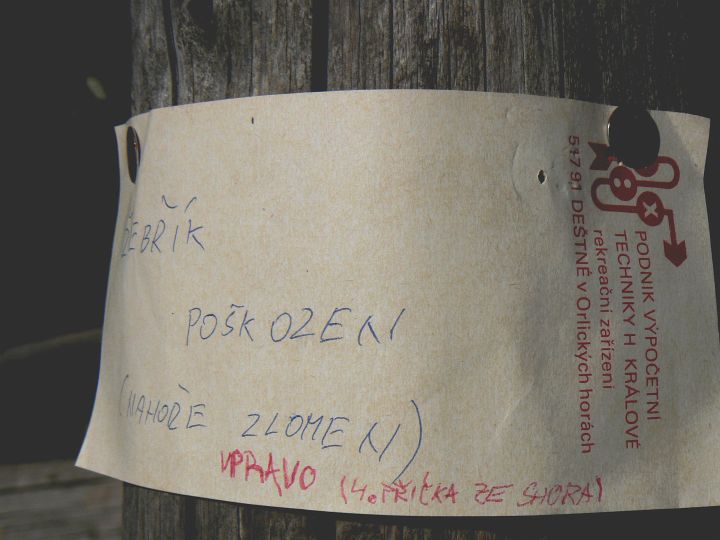 ŽEBŘÍK
POŠKOZEN
(NAHOŘE ZLOMEN)
VPRAVO (4. PŘÍČKA ZE SHORA)
PODNIK VÝPOČETNÍ
TECHNIKY H KRÁLOVÉ
rekreační zařízení
547 91 DEŠTNÉ v Orlických horách